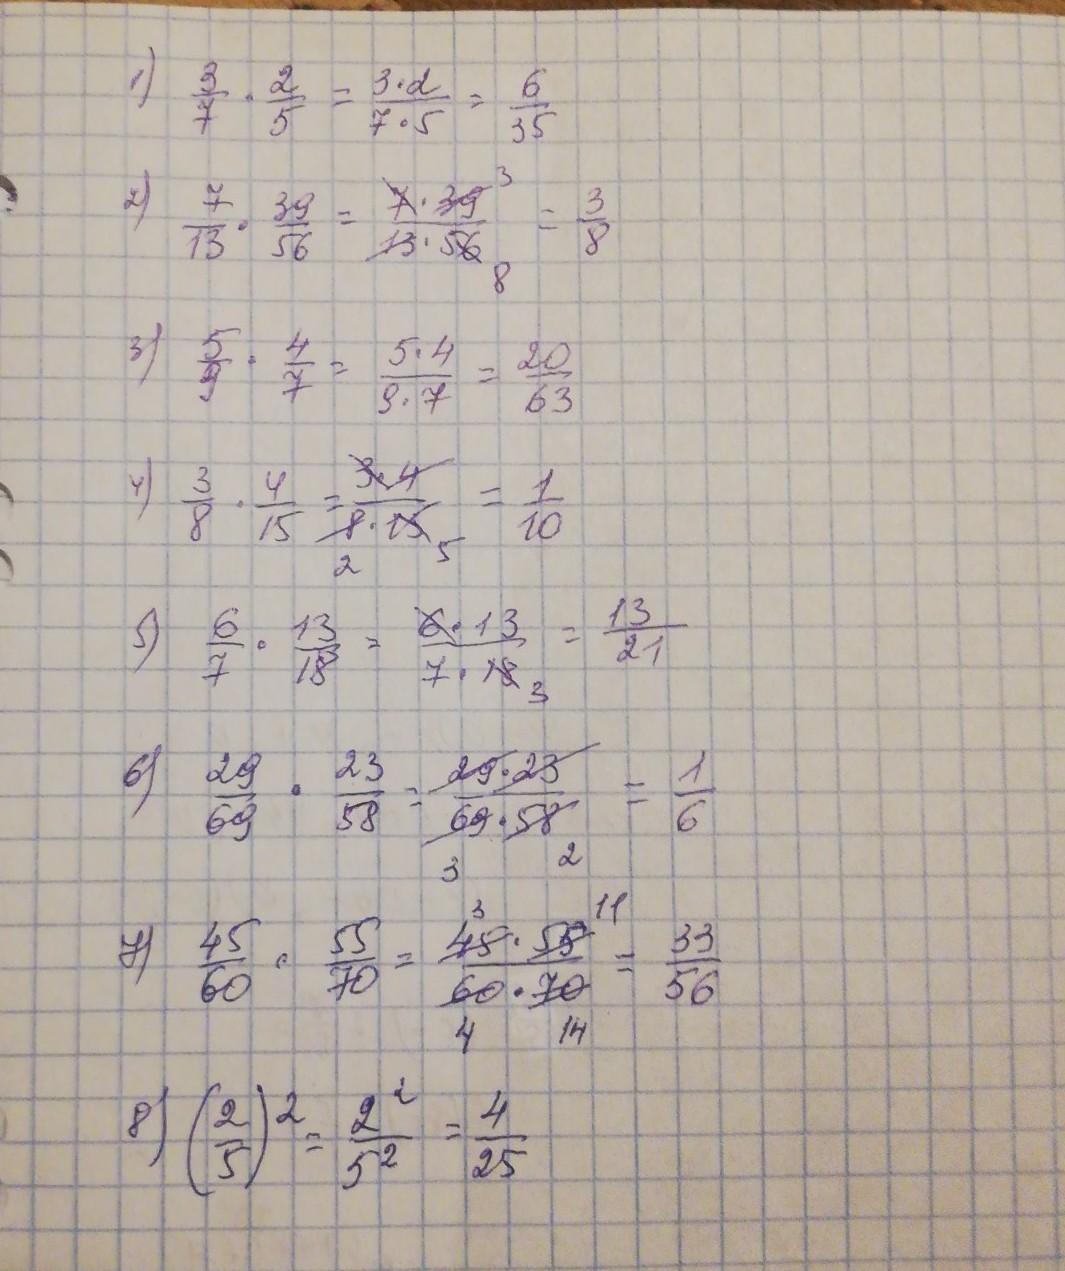 1) 3/7 · 2/5 = 3·2/7·5 = 6/35
2) 7/13 · 39/56 = 7·39 3/13·56 8 = 3/8
3) 5/9 · 4/7 = 5·4/9·7 = 20/63
4) 3/8 · 4/15 = 3·4/8·15 2 5 = 1/10
5) 6/7 · 13/18 = 6·13/7·18 3 = 13/21
6) 29/69 · 23/58 = 29·23/69·58 3 2 = 1/6
7) 45/60 · 55/70 = 3 11 45·55/60·70 4 14 = 33/56
8) (2/5)² = 2²/5² = 4/25